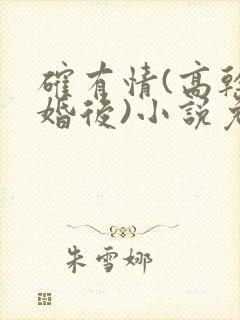 確有情(高幹
婚後)小說
朱雪娜